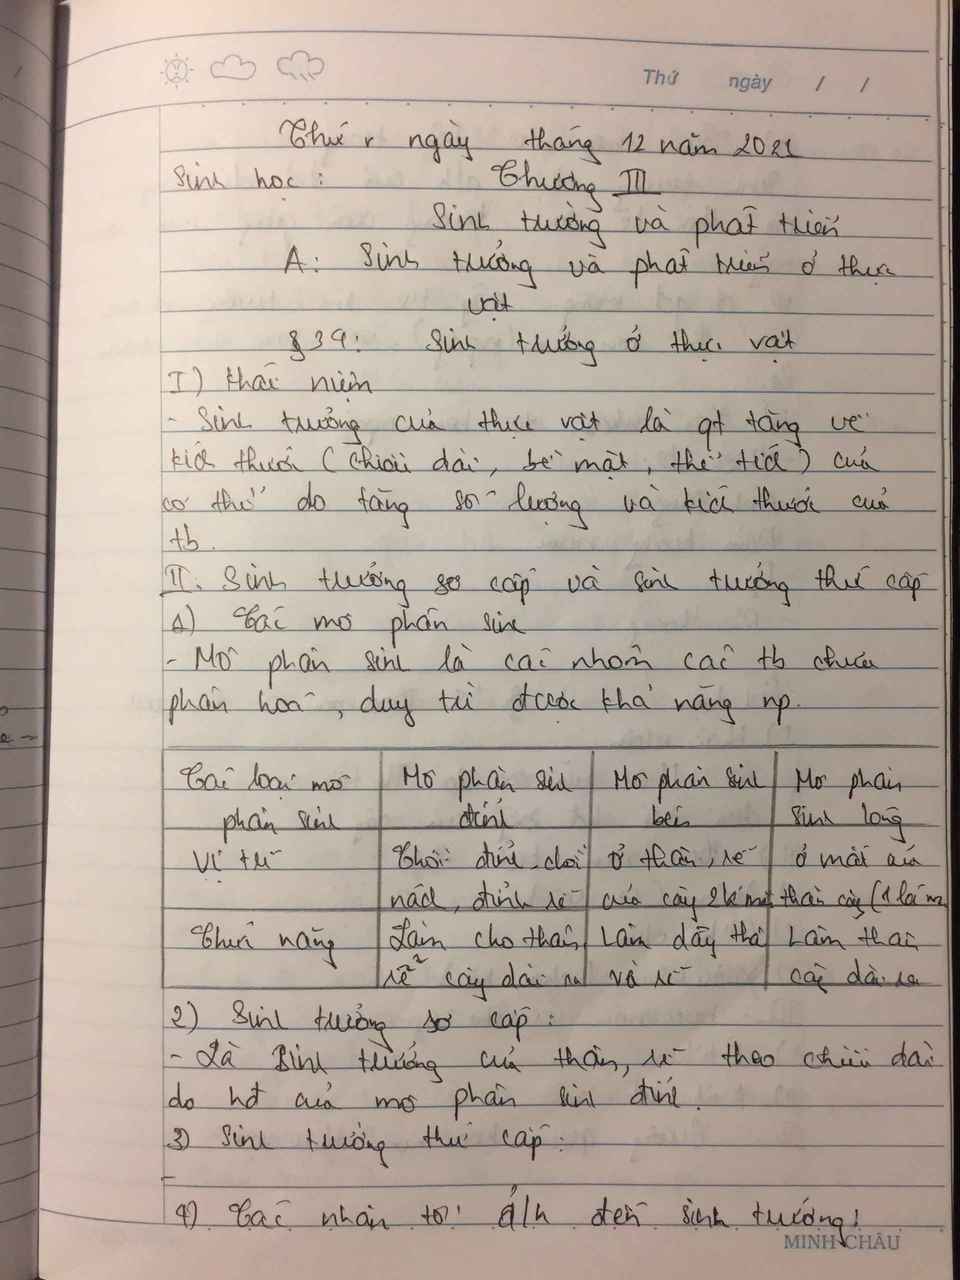 Thứ ngày / /
Thứ r ngày tháng 12 năm 2021
Sinh học : Chương III
Sinh trưởng và phát triển
A: Sinh trưởng và phát triển ở thực
vật
§ 34: Sinh trưởng ở thực vật
I) Khái niệm
- Sinh trưởng của thực vật là qt tăng về
kích thước (chiều dài, bề mặt, thể tích) của
cơ thể do tăng số lượng và kích thước của
tb.
II. Sinh trưởng sơ cấp và sinh trưởng thứ cấp
1) Các mô phân sinh
- Mô phân sinh là các nhóm các tb chưa
phân hoá, duy trì được khả năng np.
Các loại mô Mô phân sinh Mô phân sinh Mô phân
phân sinh đỉnh bên sinh lóng
Vị trí Chồi đỉnh, chồi ở thân, rễ ở mắt của
nách, đỉnh rễ của cây 2 lá mầm thân cây (1 lá m
Chức năng Làm cho thân, Làm dầy thâ Làm thân
rễ cây dài ra và rễ cây dài ra
2) Sinh trưởng sơ cấp :
- Là sinh trưởng của thân, rễ theo chiều dài
do hđ của mô phân sinh đỉnh.
3) Sinh trưởng thứ cấp :
-
4) Các nhân tố a/h đến sinh trưởng!
MINH CHÂU